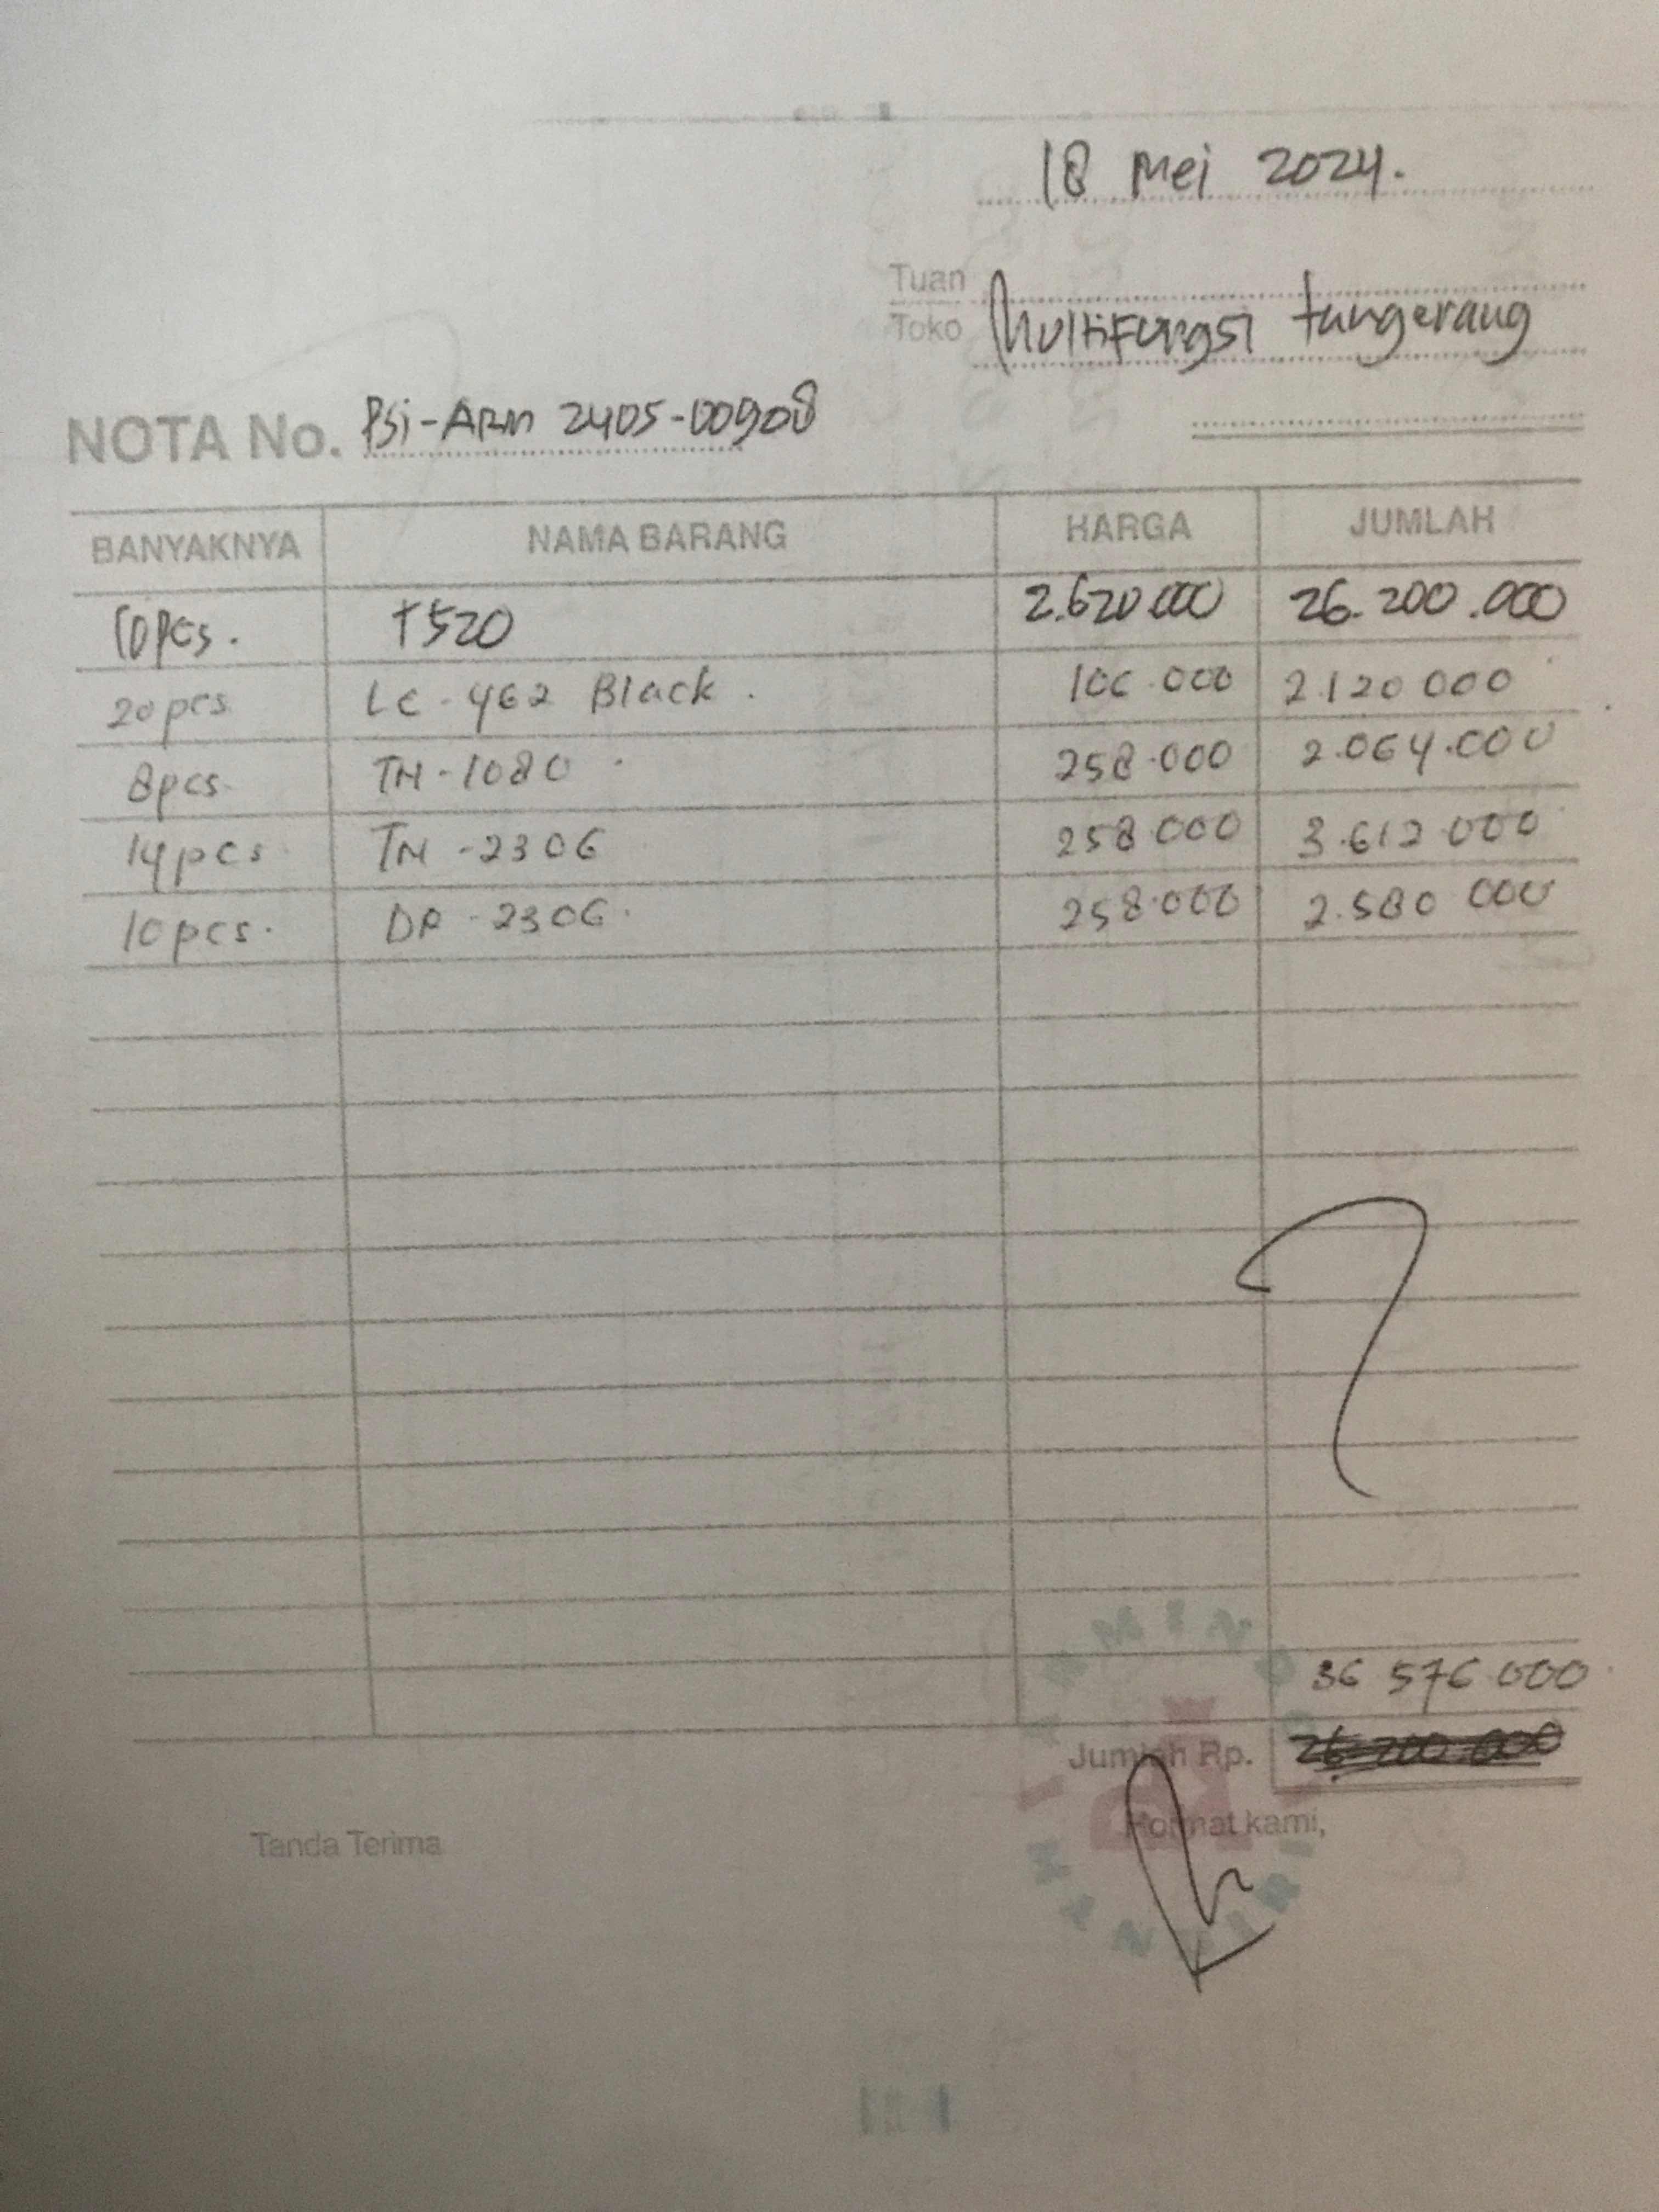 18 Mei 2024.
Tuan
Toko Multifungsi tangerang
NOTA No. PSi-ARM 2405-00908
BANYAKNYA NAMA BARANG HARGA JUMLAH
10pcs. T520 2.620.000 26.200.000
20pcs LC-462 Black. 106.000 2.120 000
8pcs. TN-1080 258.000 2.064.000
14pcs TN-2306 258 000 3.612 000
10pcs. DR-2306 258.000 2.580 000
36 576 000
Jumlah Rp. 26.200.000
Tanda Terima Hormat kami,